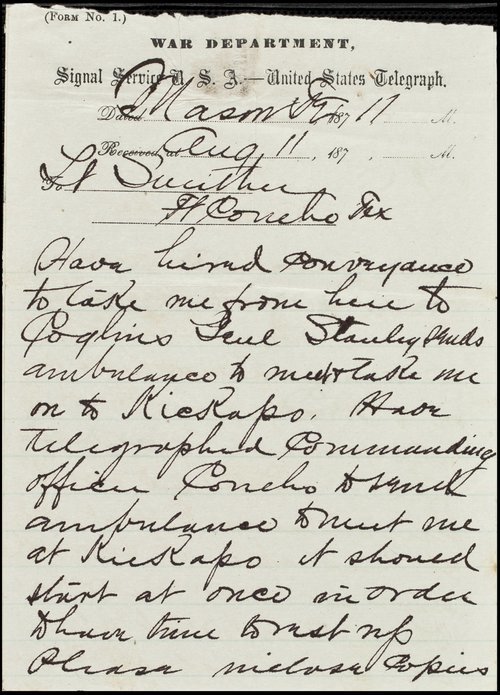 (FORM NO. 1.)
WAR DEPARTMENT,
Signal Service U. S. A.—United States Telegraph.
Dated Mason Tx 187 11 M.
Received at Aug 11, 187 , M.
To Lt
Ft Concho Tex
Have hired conveyance
to take me from here to
Coglins Genl Stanley sends
ambulance to meet & take me
on to Kickapo. Have
telegraphed Commanding
officer Concho to send
ambulance to meet me
at Kickapo it should
start at once in order
to have time to rest up
Please inclose copies